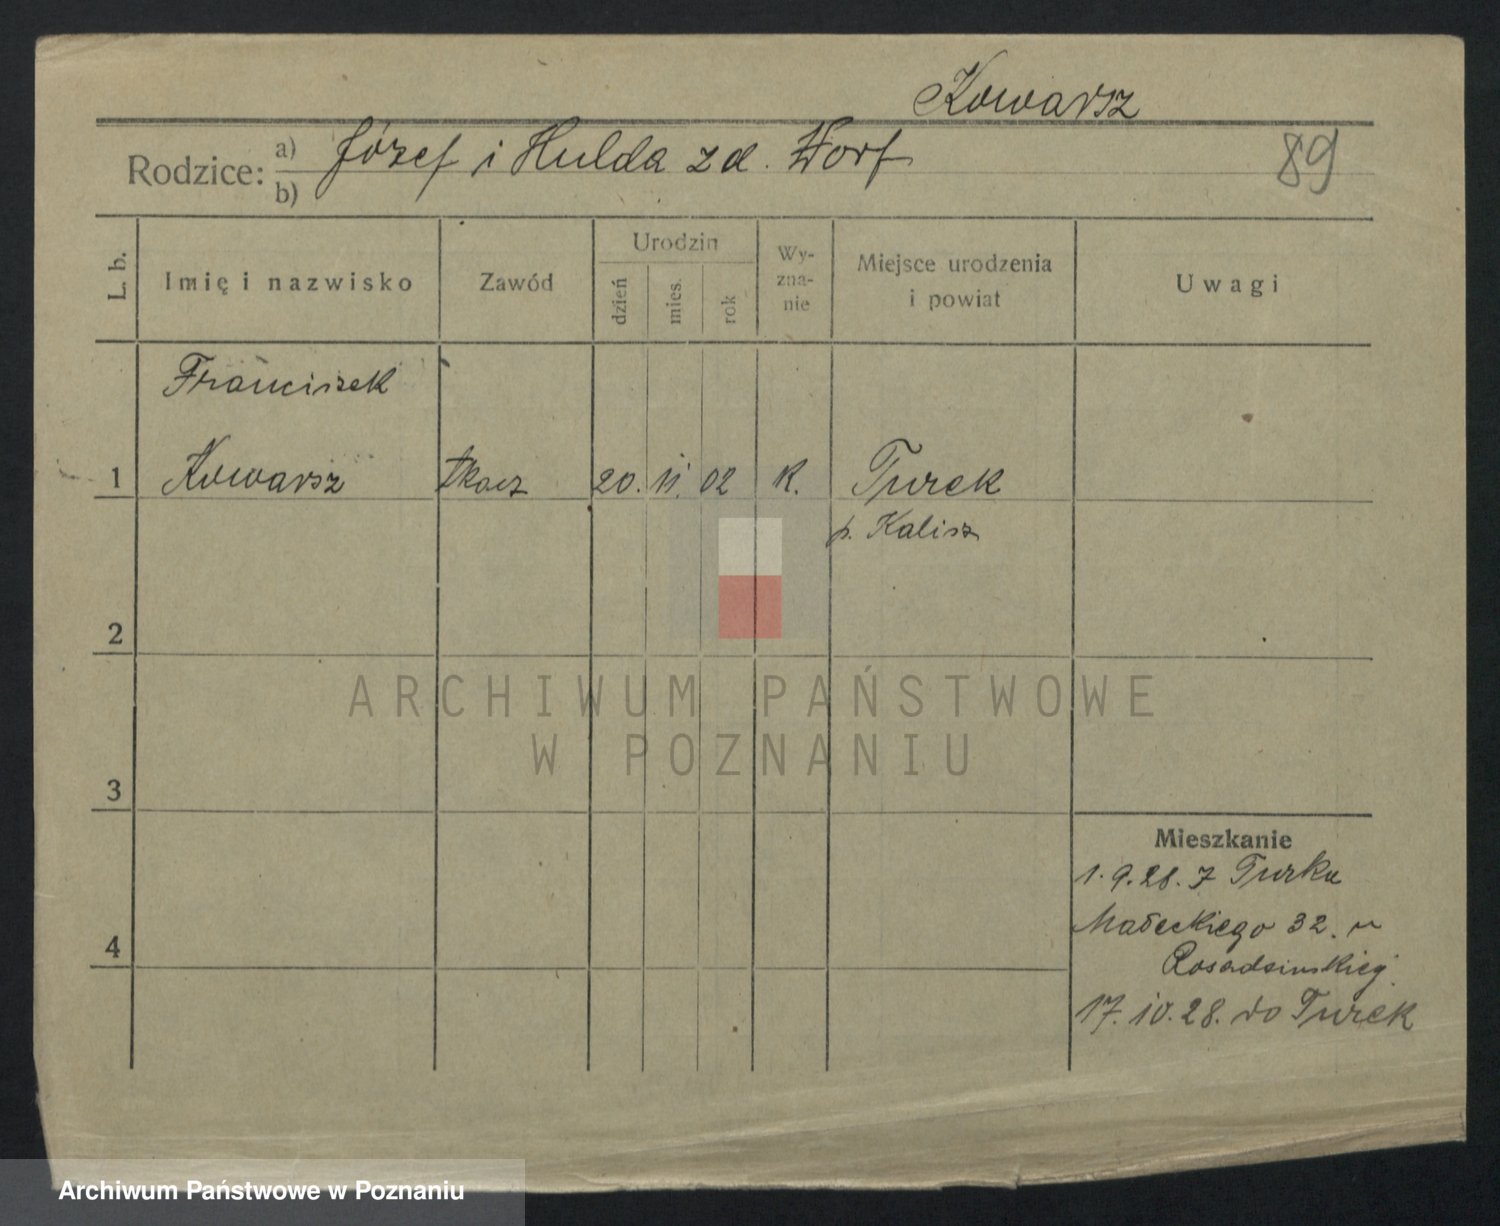 Kowarsz
Rodzice: a) Józef i Hulda z d. Worf
b)
89
L. b.
Imię i nazwisko
Zawód
Urodzin
dzień
mies.
rok
Wy-
zna-
nie
Miejsce urodzenia
i powiat
Uwagi
Franciszek
1 Kowarsz tkacz 20. 11. 02 k. Turek
p. Kalisz
2
3
4
Mieszkanie
1.9.28. z Turku
Małeckiego 32. u
17.10.28. do Turek
ARCHIWUM PAŃSTWOWE
W POZNANIU
Archiwum Państwowe w Poznaniu